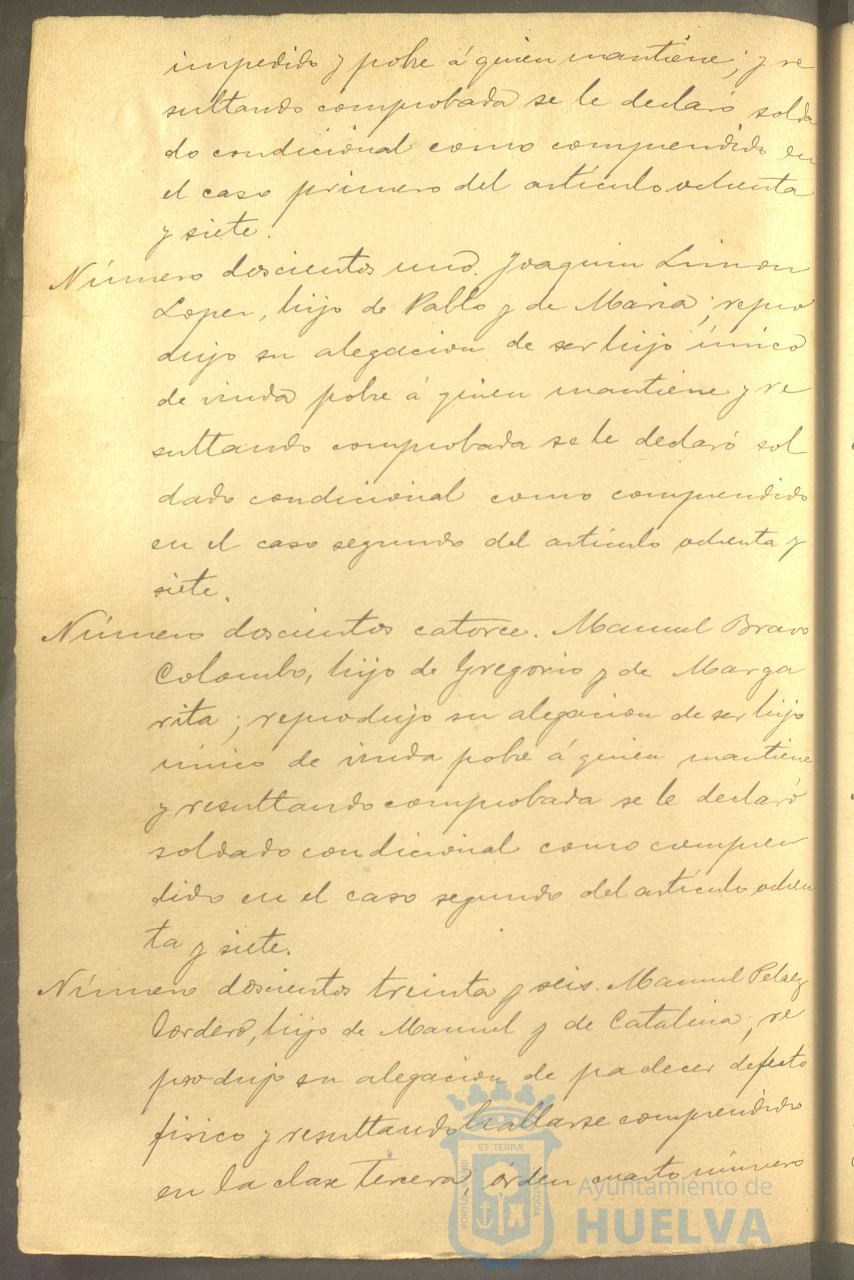 impedido y pobre á quien mantiene; y re
sultando comprobada se le declaró solda
do condicional como comprendido en
el caso primero del artículo ochenta
y siete.
Número doscientos uno. Joaquin Limon
Lopez, hijo de Pablo y de Maria; repro
dujo su alegacion de ser hijo único
de viuda pobre á quien mantiene y re
sultando comprobada se le declaró sol
dado condicional como comprendido
en el caso segundo del artículo ochenta y
siete.
Número doscientos catorce. Manuel Bravo
Colombo, hijo de Gregorio y de Marga
rita; reprodujo su alegacion de ser hijo
único de viuda pobre á quien mantiene
y resultando comprobada se le declaró
soldado condicional como compren
dido en el caso segundo del artículo ochen
ta y siete.
Número doscientos treinta y seis. Manuel Pelaez
Cordero, hijo de Manuel y de Catalina; re
produjo su alegacion de padecer defecto
fisico y resultando hallarse comprendido
en la clase tercera, órden cuarto número
ET TERRÆ
PORTUS MARIS
CUSTODIA
Ayuntamiento de
HUELVA